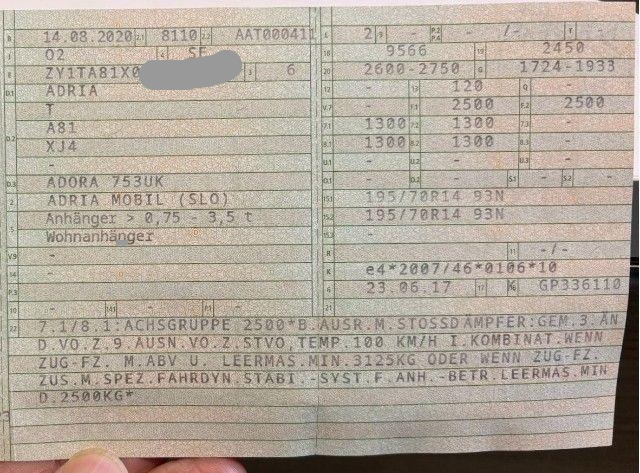 B 14.08.2020 2.1 8110 2.2 AAT000411 L 2 9 - P.2 P.4 - /- T -
J O2 4 SE 18 9566 19 2450
E ZY1TA81X0 3 6 20 2600-2750 G 1724-1933
D.1 ADRIA 12 - 13 120 Q -
T V.7 - F.1 2500 F.2 2500
D.2 A81 7.1 1300 7.2 1300 7.3 -
XJ4 8.1 1300 8.2 1300 8.3 -
- U.1 - U.2 - U.3 -
D.3 ADORA 753UK O.1 - O.2 - S.1 - S.2 -
2 ADRIA MOBIL (SLO) 15.1 195/70R14 93N
5 Anhänger > 0,75 - 3,5 t 15.2 195/70R14 93N
Wohnanhänger 15.3 -
V.9 - R - 11 -/-
14 - K e4*2007/46*0106*10
P.3 - 6 23.06.17 17 K GP336110
10 - 14.1 - P.1 - 21 -
22 7.1/8.1:ACHSGRUPPE 2500*B.AUSR.M.STOSSDÄMPFER:GEM.3.ÄN
D.VO.Z.9.AUSN.VO.Z.STVO,TEMP.100 KM/H I.KOMBINAT.WENN
ZUG-FZ. M.ABV U. LEERMAS.MIN.3125KG ODER WENN ZUG-FZ.
ZUS.M.SPEZ.FAHRDYN.STABI.-SYST.F.ANH.-BETR.LEERMAS.MIN
D.2500KG*